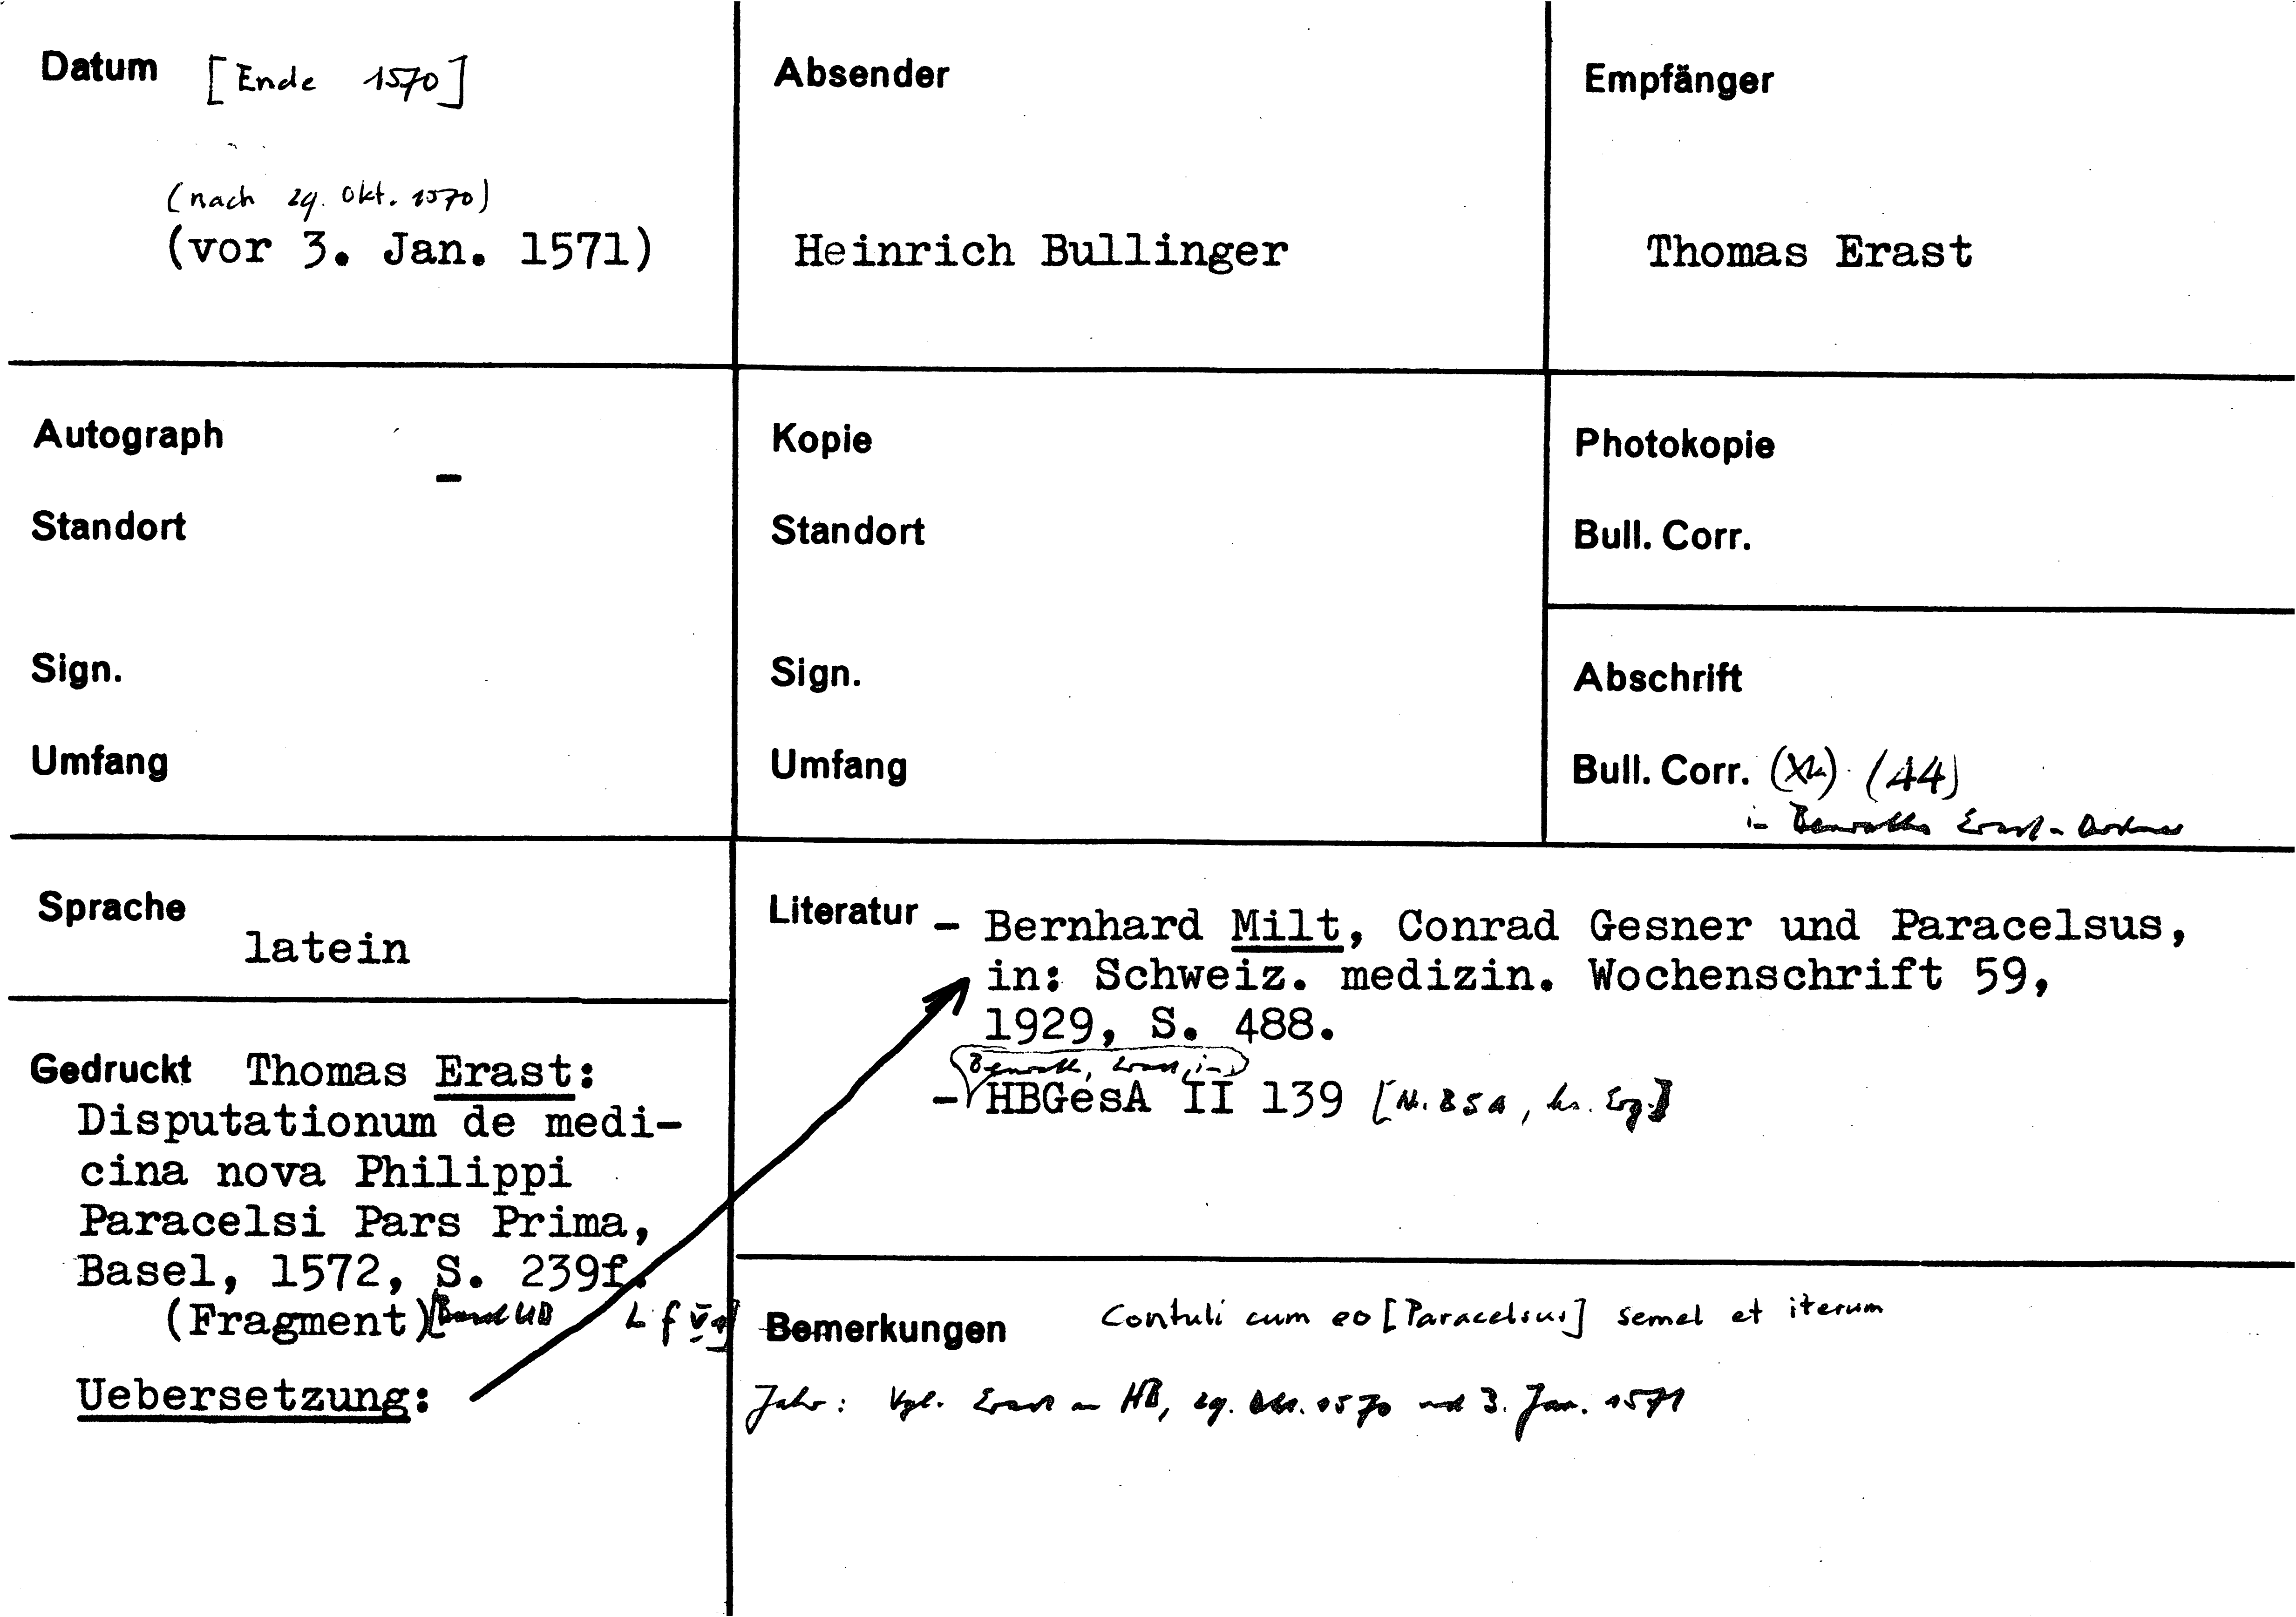 Datum [Ende 1570]
(nach 29. Okt. 1570)
(vor 3. Jan. 1571)
Absender
Heinrich Bullinger
Empfänger
Thomas Erast
Autograph
-
Standort
Sign.
Umfang
Kopie
Standort
Sign.
Umfang
Photokopie
Bull. Corr.
Abschrift
Bull. Corr. (44)
Sprache
latein
Gedruckt Thomas Erast:
Disputationum de medi-
cina nova Philippi
Paracelsi Pars Prima,
Basel, 1572, S. 239f.
(Fragment) [Basel UB L f V
Uebersetzung:
Literatur - Bernhard Milt, Conrad Gesner und Paracelsus,
in: Schweiz. medizin. Wochenschrift 59,
1929, S. 488.
Benrath, Erast, in:
- HBGesA II 139 [Nr. 85a, hs. Erg.]
Bemerkungen Contuli cum eo [Paracelsus] semel et iterum
Jahr: Vgl. Erast an HB, 29. Okt. 1570 und 3. Jan. 1571